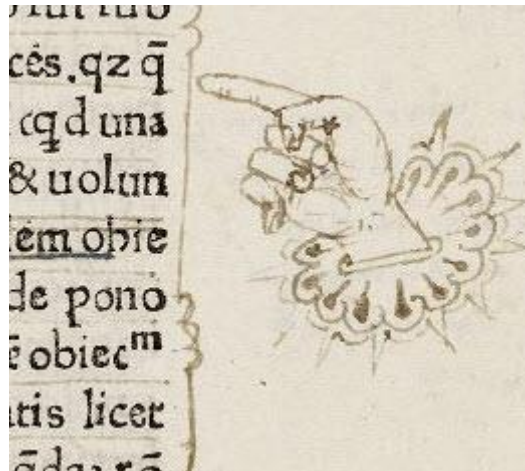 cēs.qz q̄
cꝗd una
& uolun
lem obie
de pono
ē obiecᵐ
tis licet